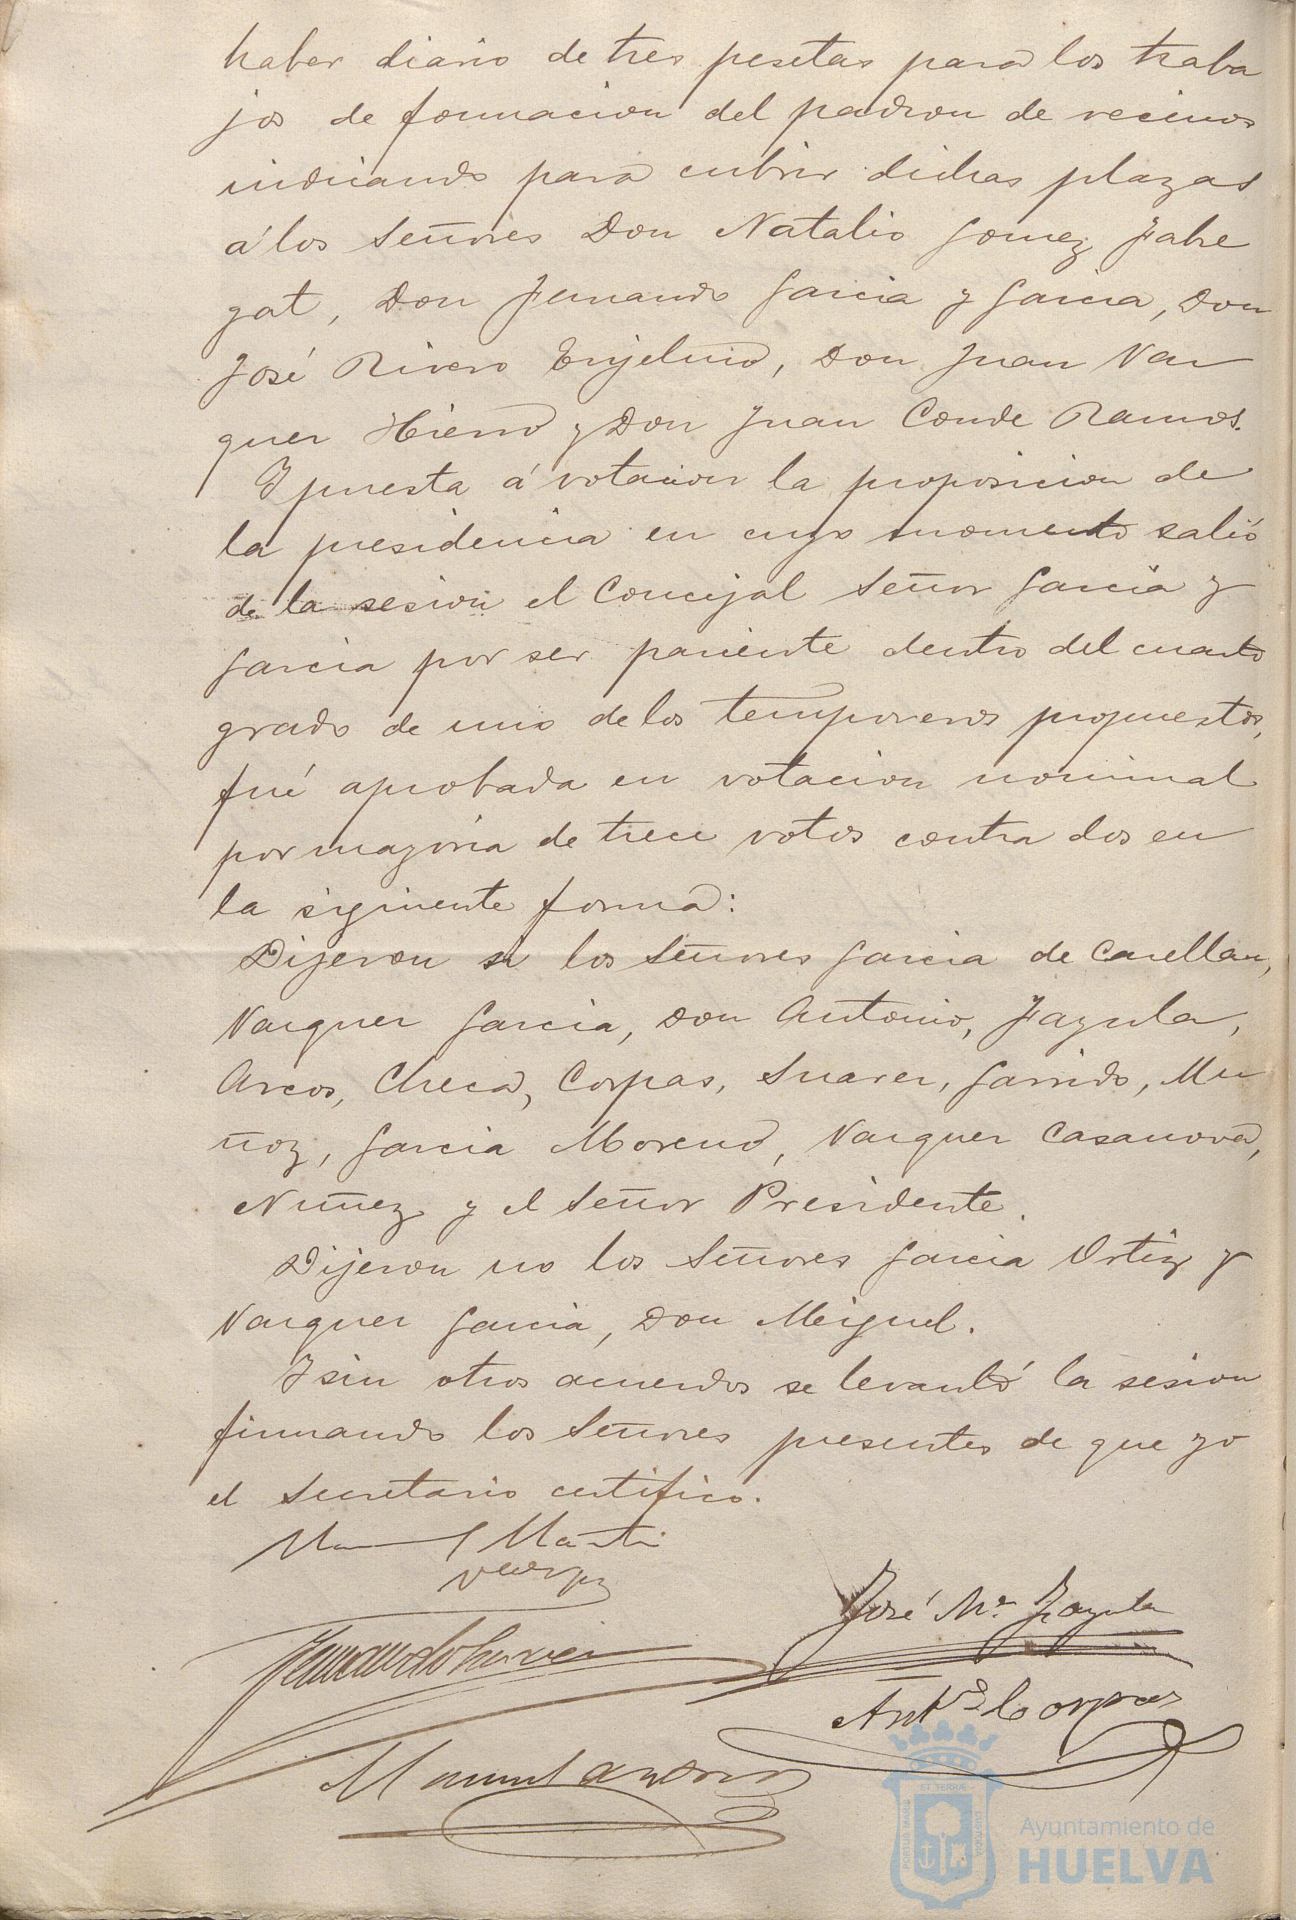 haber diario de tres pesetas para los traba
jos de formacion del padron de vecinos
indicando para cubrir dichas plazas
á los Señores Don Natalio Gomez Fabre
gat, Don Fernando Garcia y Garcia, Don
José Rivero Don Juan Vaz
quez Hierro y Don Juan Conde Ramos.
Y puesta á votacion la proposicion de
la presidencia en cuyo momento salió
de la sesion el Concejal Señor Garcia y
Garcia por ser pariente dentro del cuarto
grado de uno de los temporeros propuestos,
fué aprobada en votacion nominal
por mayoria de trece votos contra dos en
la siguiente forma:
Dijeron si los Señores Garcia de Casellan,
Vazquez Garcia, Don Antonio, Jazula,
Arcos, Checa, Corpas, Suarez, Garrido, Mu
ñoz, Garcia Moreno, Vazquez Casanova,
Nuñez y el Señor Presidente.
Dijeron no los Señores Garcia Ortiz y
Vazquez Garcia, Don Miguel.
Y sin otros acuerdos se levantó la sesion
firmando los Señores presentes de que yo
el Secretario certifico.
Martin
Vazquez
José Mª Jazula
Fernando Suarez
Antº Corpas
Manuel
ET TERRAE
PORTUS MARIS
CUSTODIA
Ayuntamiento de
HUELVA